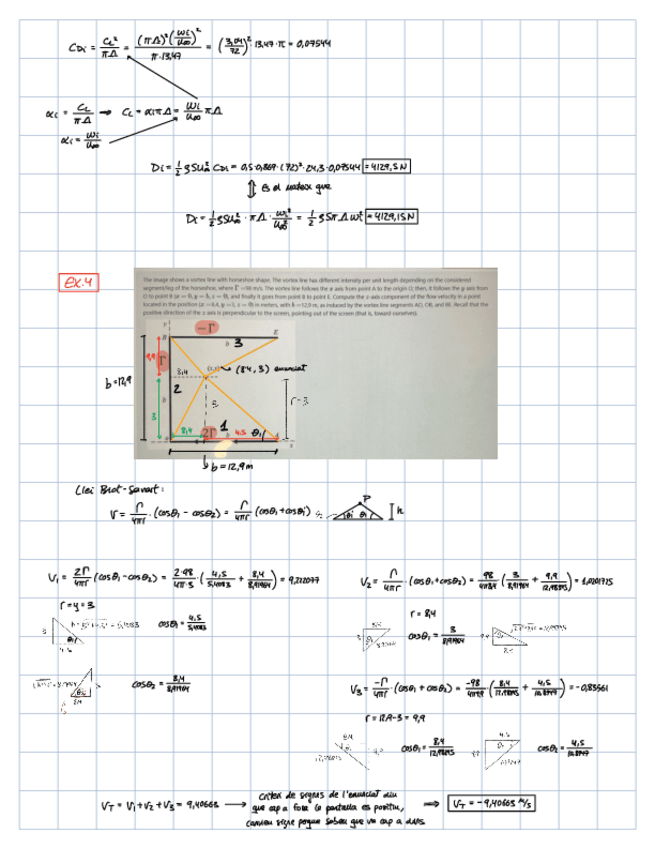 C_Di = C_L²/πΛ = (πΛ)²(wi/u∞)²/π·13,47 = (3,04/72)²·13,47·π = 0,07544
αi = C_L/πΛ → C_L = αiπΛ = wi/u∞ πΛ
αi = wi/u∞
Di = 1/2 ρSu∞² C_Di = 0,5·0,869·(72)²·24,3·0,07544 = 4129,5 N
Es el mateix que
Di = 1/2 ρSu∞² · πΛ · wi²/u∞² = 1/2 ρSπΛwi² = 4129,15N
Ex.4
The image shows a vortex line with horseshoe shape. The vortex line has different intensity per unit length depending on the considered
segment/leg of the horseshoe, where Γ =98 m/s. The vortex line follows the x axis from point A to the origin O; then, it follows the y axis from
O to point B (x = 0, y = b, z = 0), and finally it goes from point B to point E. Compute the z-axis component of the flow velocity in a point
located in the position (x = 8.4, y = 3, z = 0) in meters, with b =12,9 m, as induced by the vortex line segments AO, OB, and BE. Recall that the
positive direction of the z-axis is perpendicular to the screen, pointing out of the screen (that is, toward ourselves).
-Γ
y
B
b
3
E
9,9
Γ
8,4
(8.4, 3) enunciat
b = 12,9
2
b
3
r-3
3
8,4
2Γ
1
4.5
θ1
x
b = 12,9 m
Llei Biot-Savart:
V = Γ/4πr · (cosθ1 - cosθ2) = Γ/4πr (cosθ1 + cosθi)
P
h
V1 = 2Γ/4πr (cosθ1 - cosθ2) = 2·98/4π·3 · (4,5/5,4083 + 8,4/8,91964) = 9,222077
V2 = Γ/4πr · (cosθ1 + cosθ2) = 98/4π8,4 (3/8,91964 + 9,9/12,98395) = 1,0201725
r = y = 3
cosθ1 = 4,5/5,4083
cosθ2 = 8,4/8,91964
r = 8,4
cosθ1 = 3/8,91964
V3 = -Γ/4πr · (cosθ1 + cosθ2) = -98/4π9,9 · (8,4/12,9895 + 4,5/10,8747) = -0,83561
r = 12,9-3 = 9,9
cosθ1 = 8,4/12,98395
cosθ2 = 4,5/10,8747
V_T = V1 + V2 + V3 = 9,40663 → criteri de signes de l'enunciat diu
que cap a fora la pantalla es positiu,
canviem signe perque sabem que va cap a dins
⇒ V_T = -9,40663 m/s